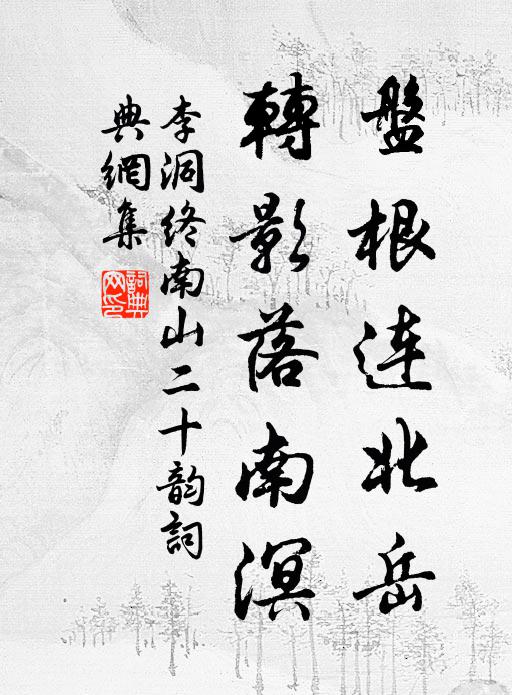 盤根連北岳
轉影落南溟
李洞終南山二十韵詞
典網集
詞典網印